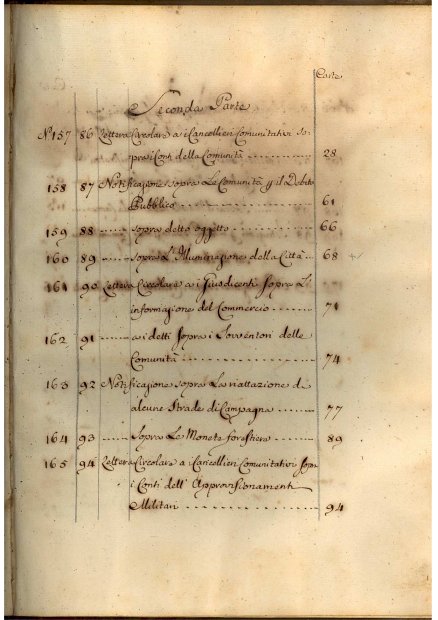 Carte
Seconda Parte
N.º 157 86 Lettera Circolare a i Cancellieri Comunitativi so-
pra i Conti della Comunità 28
158 87 Notificazione sopra Le Comunità p il Debito
Pubblico 61
159 88 sopra detto oggetto 66
160 89 sopra L'Illuminazione della Città 68
161 90 Lettera Circolare a i Giusdicenti Sopra L'
informazione del Commercio 71
162 91 a i detti Sopra i Sovventori delle
Comunità 74
163 92 Notificazione sopra La riattazione di
alcune Strade di Campagna 77
164 93 Sopra Le Monete forestiere 89
165 94 Lettera Circolare a i Cancellieri Comunitativi Sopra
i Conti dell' Approvisionamenti
Militari 94